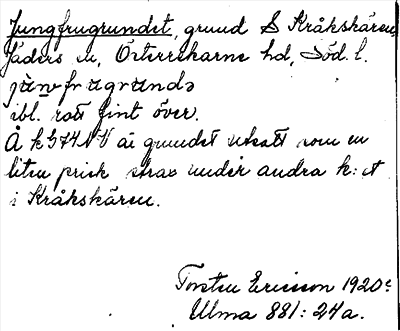 Jungfrugrundet, grund S Kråkskären,
Jäders sn, Österrekarne hd, Söd. l.
ibl. rätt fint över.
Å k 574 NV är grundet utsatt som en
liten prick strax under andra k:et
i Kråkskären.
Torsten Ericsson 1920 c
Ulma 881:24a.